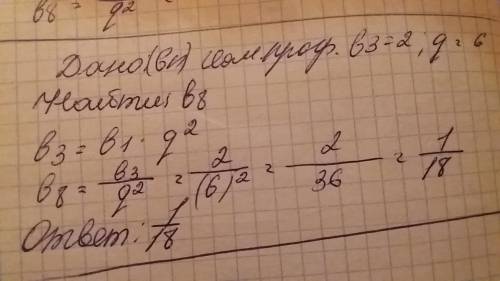 в8 = q²
Дано (вn) геом. прогр. в3=2; q=6
Найти: в8
в3 = в1 · q²
в8 = в3/q² = 2/(6)² = 2/36 = 1/18
Ответ: 1/18